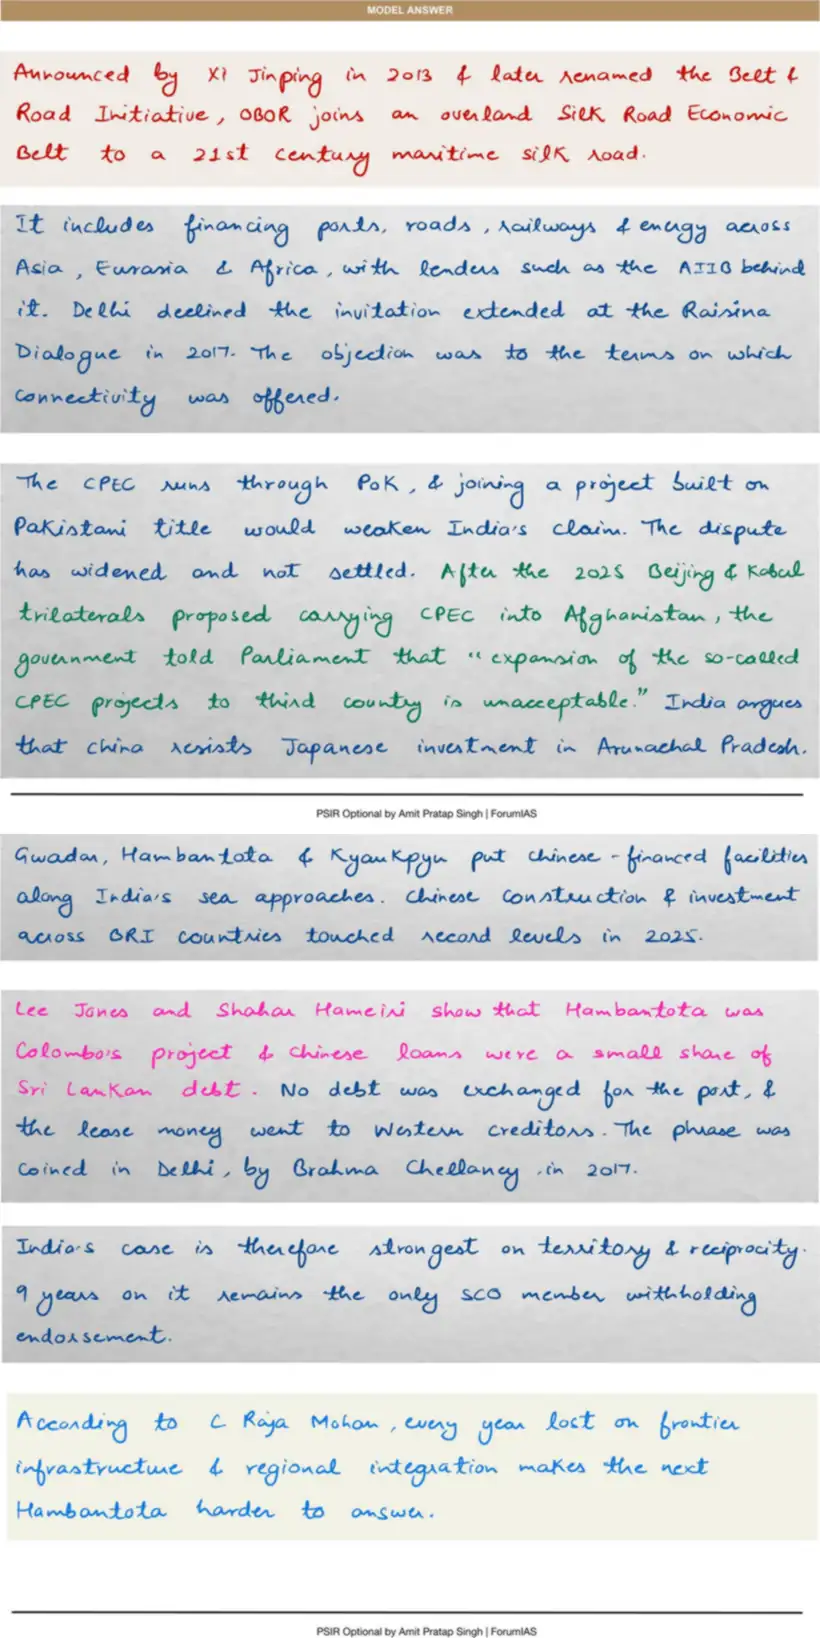 MODEL ANSWER
Announced by Xi Jinping in 2013 & later renamed the Belt &
Road Initiative, OBOR joins an overland Silk Road Economic
Belt to a 21st century maritime silk road.
It includes financing ports, roads, railways & energy across
Asia, Eurasia & Africa, with lenders such as the AIIB behind
it. Delhi declined the invitation extended at the Raisina
Dialogue in 2017. The objection was to the terms on which
connectivity was offered.
The CPEC runs through PoK, & joining a project built on
Pakistani title would weaken India's claim. The dispute
has widened and not settled. After the 2025 Beijing & Kabul
trilaterals proposed carrying CPEC into Afghanistan, the
government told Parliament that "expansion of the so-called
CPEC projects to third country is unacceptable." India argues
that China resists Japanese investment in Arunachal Pradesh.
PSIR Optional by Amit Pratap Singh | ForumIAS
Gwadar, Hambantota & Kyaukpyu put Chinese-financed facilities
along India's sea approaches. Chinese construction & investment
across BRI countries touched record levels in 2025.
Lee Jones and Shahar Hameiri show that Hambantota was
Colombo's project & Chinese loans were a small share of
Sri Lankan debt. No debt was exchanged for the port, &
the lease money went to Western creditors. The phrase was
coined in Delhi, by Brahma Chellaney, in 2017.
India's case is therefore strongest on territory & reciprocity.
9 years on it remains the only SCO member withholding
endorsement.
According to C Raja Mohan, every year lost on frontier
infrastructure & regional integration makes the next
Hambantota harder to answer.
PSIR Optional by Amit Pratap Singh | ForumIAS